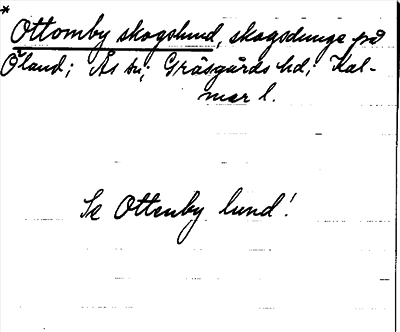 *
Ottomby skogslund, skogsdunge på
Öland; Ås sn; Gräsgårds hd; Kal-
mar l.
Se Ottenby lund!